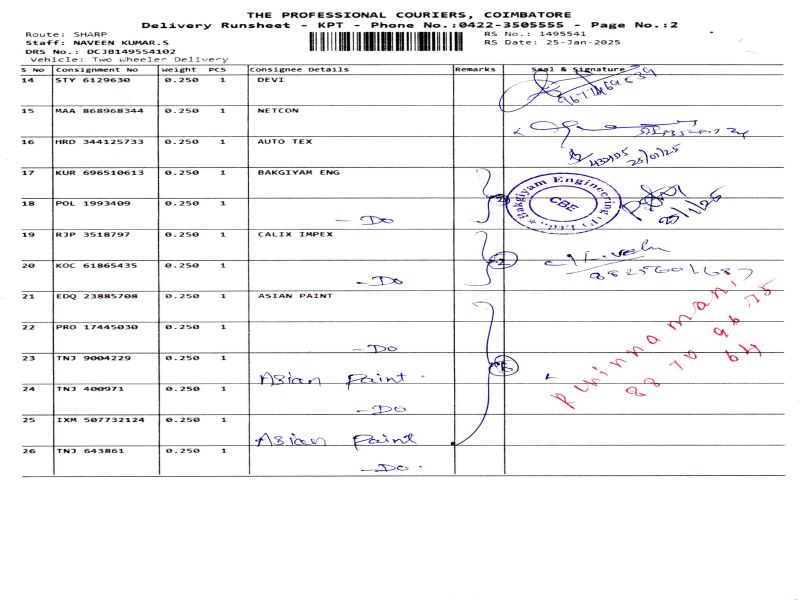 THE PROFESSIONAL COURIERS, COIMBATORE
Delivery Runsheet - KPT - Phone No.:0422-3505555 - Page No.:2
Route: SHARP
RS No.: 1495541
Staff: NAVEEN KUMAR.S
RS Date: 25-Jan-2025
DRS No.: DCJB149554102
Vehicle: Two Wheeler Delivery
S No Consignment No Weight PCS Consignee Details Remarks Seal & Signature
14 STY 6129630 0.250 1 DEVI
15 MAA 868968344 0.250 1 NETCON
16 HRD 344125733 0.250 1 AUTO TEX
25/01/25
17 KUR 696510613 0.250 1 BAKGIYAM ENG
Bakgiyam Engineering (P) Ltd.,
CBE
18 POL 1993409 0.250 1 - Do
25/1/25
19 RJP 3518797 0.250 1 CALIX IMPEX
20 KOC 61865435 0.250 1 - Do
8825601687
21 EDQ 23885708 0.250 1 ASIAN PAINT
22 PRO 17445030 0.250 1 - Do
23 TNJ 9004229 0.250 1 Asian Paint.
24 TNJ 400971 0.250 1 - Do
25 IXM 507732124 0.250 1 Asian Paint
26 TNJ 643861 0.250 1 - Do.
88 70 96 75
64